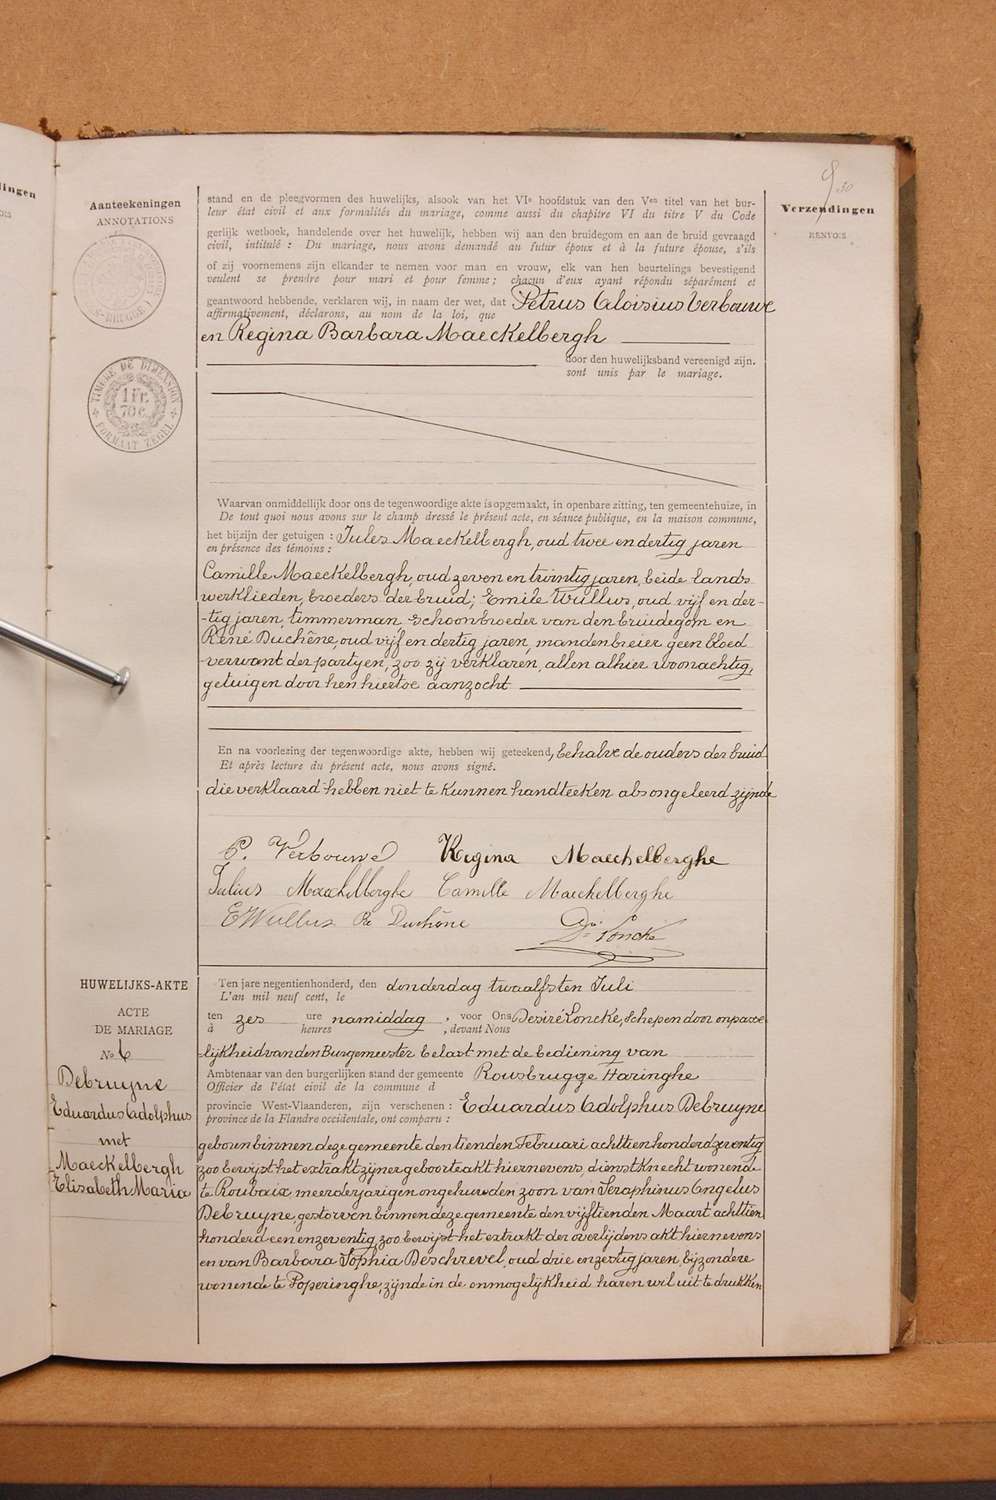 Aanteekeningen
ANNOTATIONS
TIMBRE DE DIMENSION
1 Fr.
70 c.
FORMAAT ZEGEL
Verzendingen
RENVOIS
stand en de pleegvormen des huwelijks, alsook van het VIe hoofdstuk van den Ven titel van het bur-
leur état civil et aux formalités du mariage, comme aussi du chapitre VI du titre V du Code
gerlijk wetboek, handelende over het huwelijk, hebben wij aan den bruidegom en aan de bruid gevraagd
civil, intitulé : Du mariage, nous avons demandé au futur époux et à la future épouse, s'ils
of zij voornemens zijn elkander te nemen voor man en vrouw, elk van hen beurtelings bevestigend
veulent se prendre pour mari et pour femme ; chacun d'eux ayant répondu séparément et
geantwoord hebbende, verklaren wij, in naam der wet, dat Petrus Aloisius Verbouwe
affirmativement, déclarons, au nom de la loi, que
en Regina Barbara Maeckelbergh
door den huwelijksband vereenigd zijn.
sont unis par le mariage.
Waarvan onmiddellijk door ons de tegenwoordige akte is opgemaakt, in openbare zitting, ten gemeentehuize, in
De tout quoi nous avons sur le champ dressé le présent acte, en séance publique, en la maison commune,
het bijzijn der getuigen : Jules Maeckelbergh, oud twee en dertig jaren
en présence des témoins :
Camille Maeckelbergh, oud zeven en twintig jaren, beide lands
werklieden, broeders der bruid; Emile Wullus, oud vijf en der-
-tig jaren, timmerman schoonbroeder van den bruidegom en
René Duchêne, oud vijf en dertig jaren, mandenbreier geen bloed
verwant der partyen, zoo zij verklaren, allen alhier woonachtig,
getuigen door hen hiertoe aanzocht
En na voorlezing der tegenwoordige akte, hebben wij geteekend, behalve de ouders der bruid
Et après lecture du présent acte, nous avons signé.
die verklaard hebben niet te kunnen handteeken als ongeleerd zijnde
P. Verbouwe Regina Maeckelberghe
Julius Maeckelberghe Camille Maeckelberghe
E Wullus Re Duchêne Dré Loncke
HUWELIJKS-AKTE
ACTE
DE MARIAGE
No 6
Debruyne
Eduardus Adolphus
met
Maeckelbergh
Elisabeth Maria
Ten jare negentienhonderd, den donderdag twaalfsten Juli
L'an mil neuf cent, le
ten zes ure namiddag, voor Ons Desiré Loncke, schepen door onpasse
à heures , devant Nous
lijkheid van den Burgemeester belast met de bediening van
Ambtenaar van den burgerlijken stand der gemeente Rousbrugge Haringhe
Officier de l'état civil de la commune d
provincie West-Vlaanderen, zijn verschenen : Eduardus Adolphus Debruyne
province de la Flandre occidentale, ont comparu :
geboren binnen deze gemeente den tienden Februari achttien honderd zeventig
zoo bewijst het extrakt zijner geborteakt hiernevens, dienstknecht wonende
te Roubaix, meerderjarigen ongehuwden zoon van Seraphinus Angelus
Debruyne, gestorven binnen deze gemeente den vijftienden Maart achttien
honderd een en zeventig, zoo bewijst het extrakt der overlijdens akt hiernevens
en van Barbara Sophia Deschrevel, oud drie en zestig jaren, bijzondere
wonende te Poperinghe, zijnde in de onmogelijkheid haren wil uit te drukken